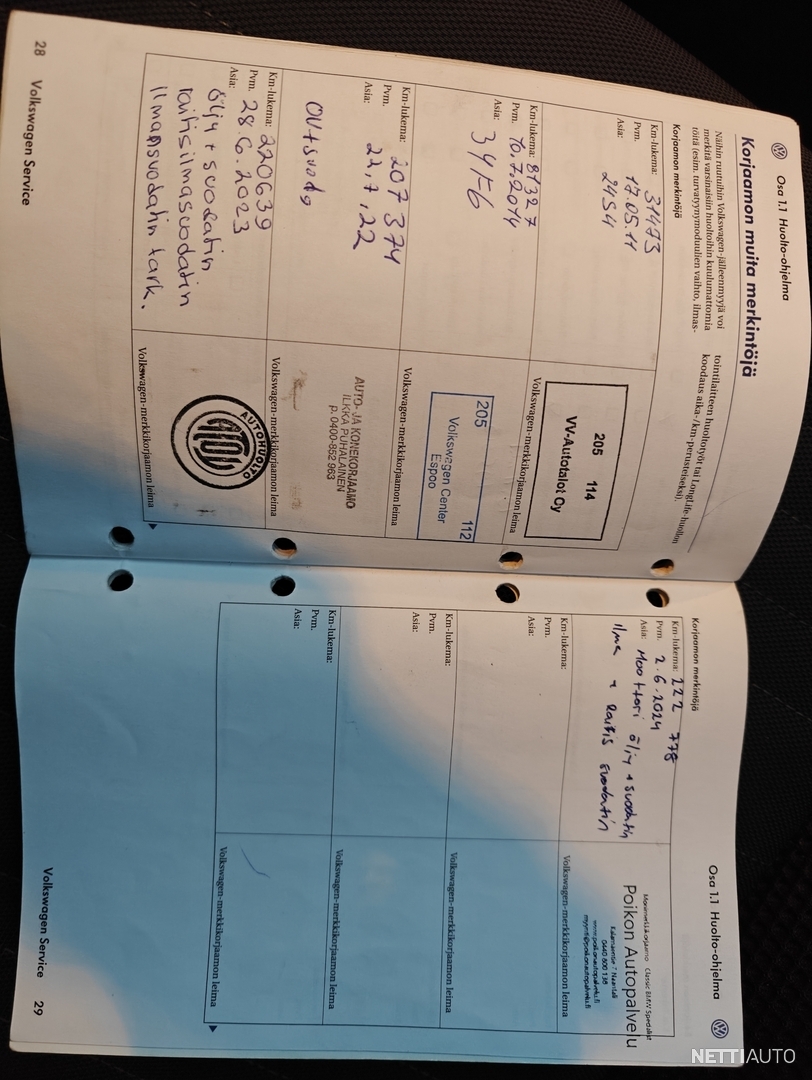 Osa 1.1 Huolto-ohjelma
Korjaamon muita merkintöjä
Näihin ruutuihin Volkswagen-jälleenmyyjä voi
merkitä varsinaisiin huoltoihin kuulumattomia
töitä (esim. turvatyynymoduulien vaihto, ilmas-
tointilaitteen huoltotyöt tai LongLife-huollon
koodaus aika-/km-perusteiseksi).
Korjaamon merkintöjä
Km-lukema: 31473
Pvm. 17.05.11
Asia: 2454
205 114
VV-Autotalot Oy
Volkswagen-merkkikorjaamon leima
Km-lukema: 81327
Pvm. 10.7.2014
Asia:
205 112
Volkswagen Center
Espoo
Volkswagen-merkkikorjaamon leima
Km-lukema: 207 374
Pvm. 22,7,22
Asia:
AUTO- JA KONEKORJAAMO
ILKKA PUHALAINEN
p. 0400-852 963
Volkswagen-merkkikorjaamon leima
Km-lukema: 220639
Pvm. 28.6.2023
Asia: Öljy + suodatin
raitisilmasuodatin
Ilmansuodatin tark.
AUTOHUOLTO
Volkswagen-merkkikorjaamon leima
28 Volkswagen Service
Osa 1.1 Huolto-ohjelma
Korjaamon merkintöjä
Km-lukema: 222 778
Pvm. 2.6.2024
Asia: Moottori öljy + suodatin
Ilma + raitis suodatin
Monimerkkikorjaamo Classic BMW Specialist
Poikon Autopalvelu
0440 800 138
www.poikonautopalvelu.fi
myynti@poikonautopalvelu.fi
Volkswagen-merkkikorjaamon leima
Km-lukema:
Pvm.
Asia:
Volkswagen-merkkikorjaamon leima
Km-lukema:
Pvm.
Asia:
Volkswagen-merkkikorjaamon leima
Km-lukema:
Pvm.
Asia:
Volkswagen-merkkikorjaamon leima
Volkswagen Service 29
NETTIAUTO